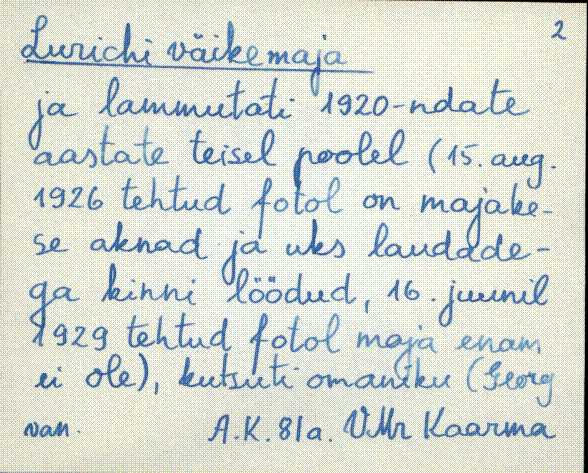 2
Lurichi väikemaja
ja lammutati 1920-ndate
aastate teisel poolel (15. aug.
1926 tehtud fotol on majake-
se aknad ja uks laudade-
ga kinni löödud, 16. juunil
1929 tehtud fotol maja enam
ei ole), kutsuti omaniku (Georg
van. A.K. 81a. VMr Kaarma